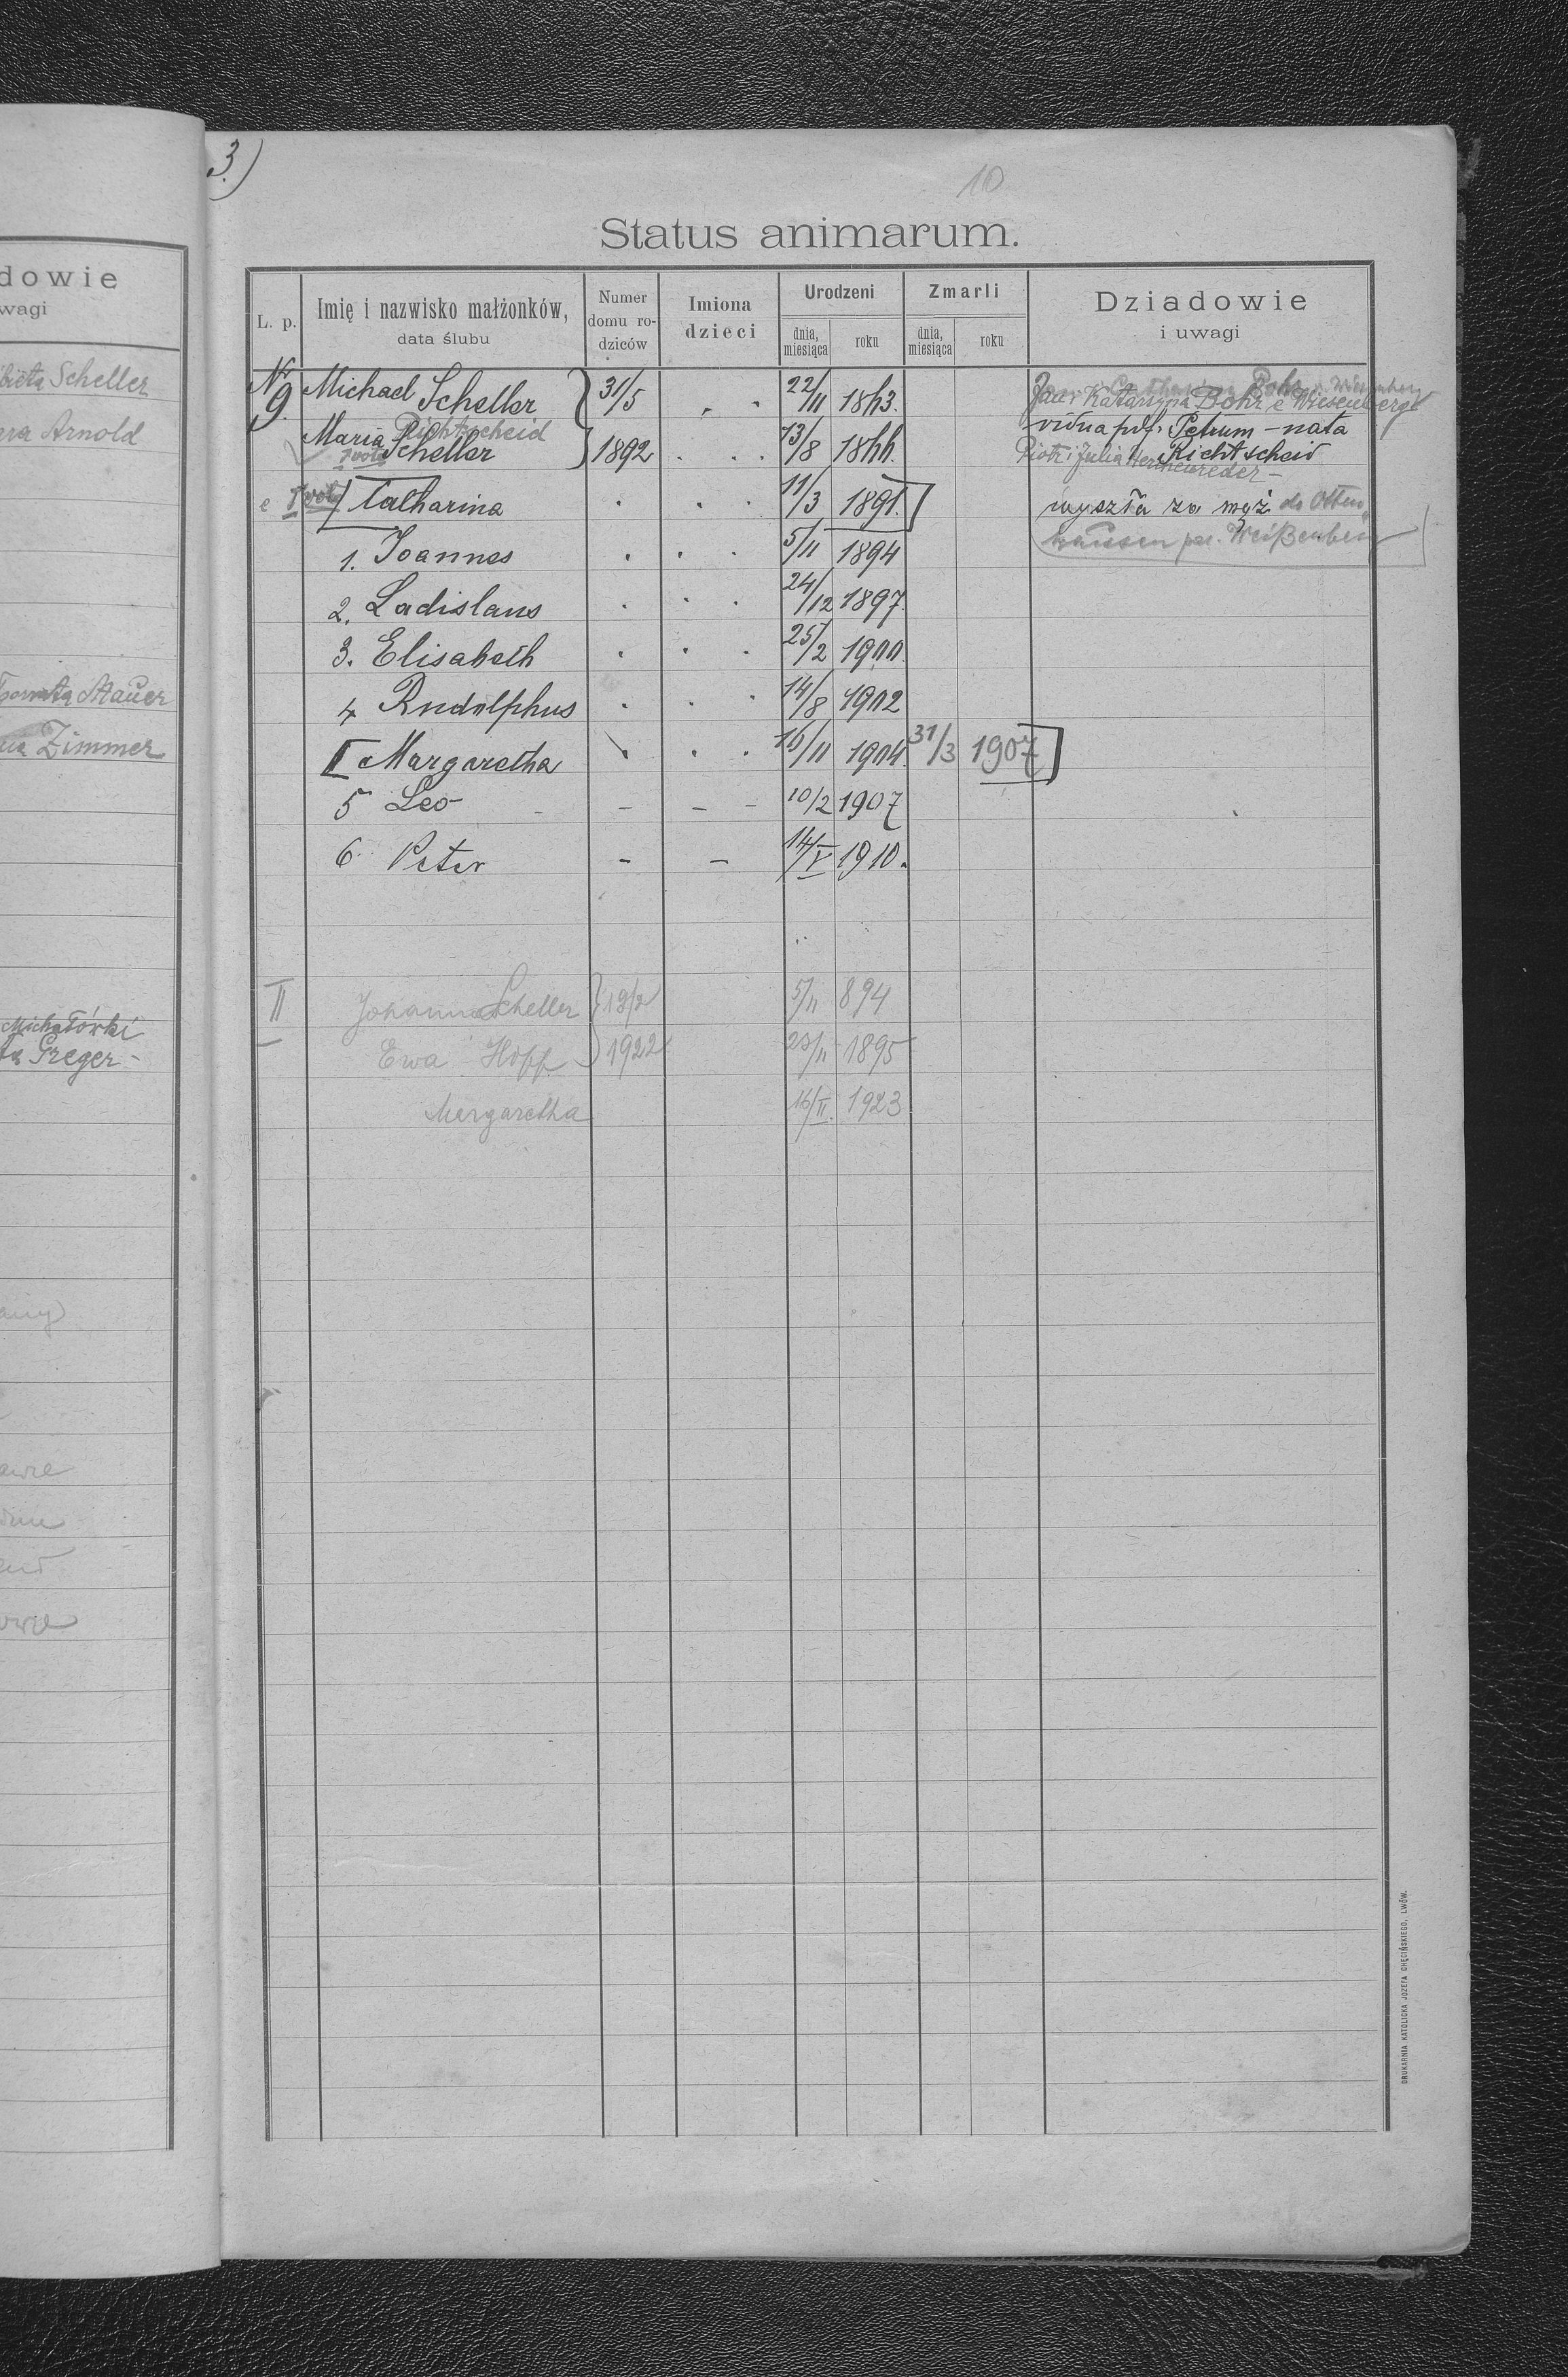 dowie
wagi
bieta Scheller
Arnold
Mauer
Zimmer
Michałówki
Greger -
3.)
10
Status animarum.
L. p.
Imię i nazwisko małżonków,
data ślubu
Numer
domu ro-
dziców
Imiona
dzieci
Urodzeni
dnia,
miesiąca
roku
Zmarli
dnia,
miesiąca
roku
Dziadowie
i uwagi
No 9. Michael Scheller } 31/5 . . 22/11 18h3. Jan i Katarzyna Bohr e Wiesenberg
Richtscheid
Maria Scheller } 1892 . . . 13/8 18hh. vidua p. Petrum - nata
I voti
Piotr i Julia Richtscheid
e I voti [ Catharina . . . 11/3 1891. ] wyszła za mąż do Otten
hausen par. Weißenberg
1. Joannes . . . 5/11 1894
2. Ladislaus . . . 24/12 1897
3. Elisabeth . . . 25/2 1900
4 Rudolphus . . . 14/8 1902
[ Margaretha . . . 16/11 1904 31/3 1907 ]
5 Leo - - - - 10/2 1907
6. Peter - - 14/V 1910.
II Johann Scheller } 19/2 5/11 894
Ewa Hopf } 1922 23/11 1895
Margaretha 16/II. 1923
DRUKARNIA KATOLICKA JÓZEFA CHĘCIŃSKIEGO, LWÓW.